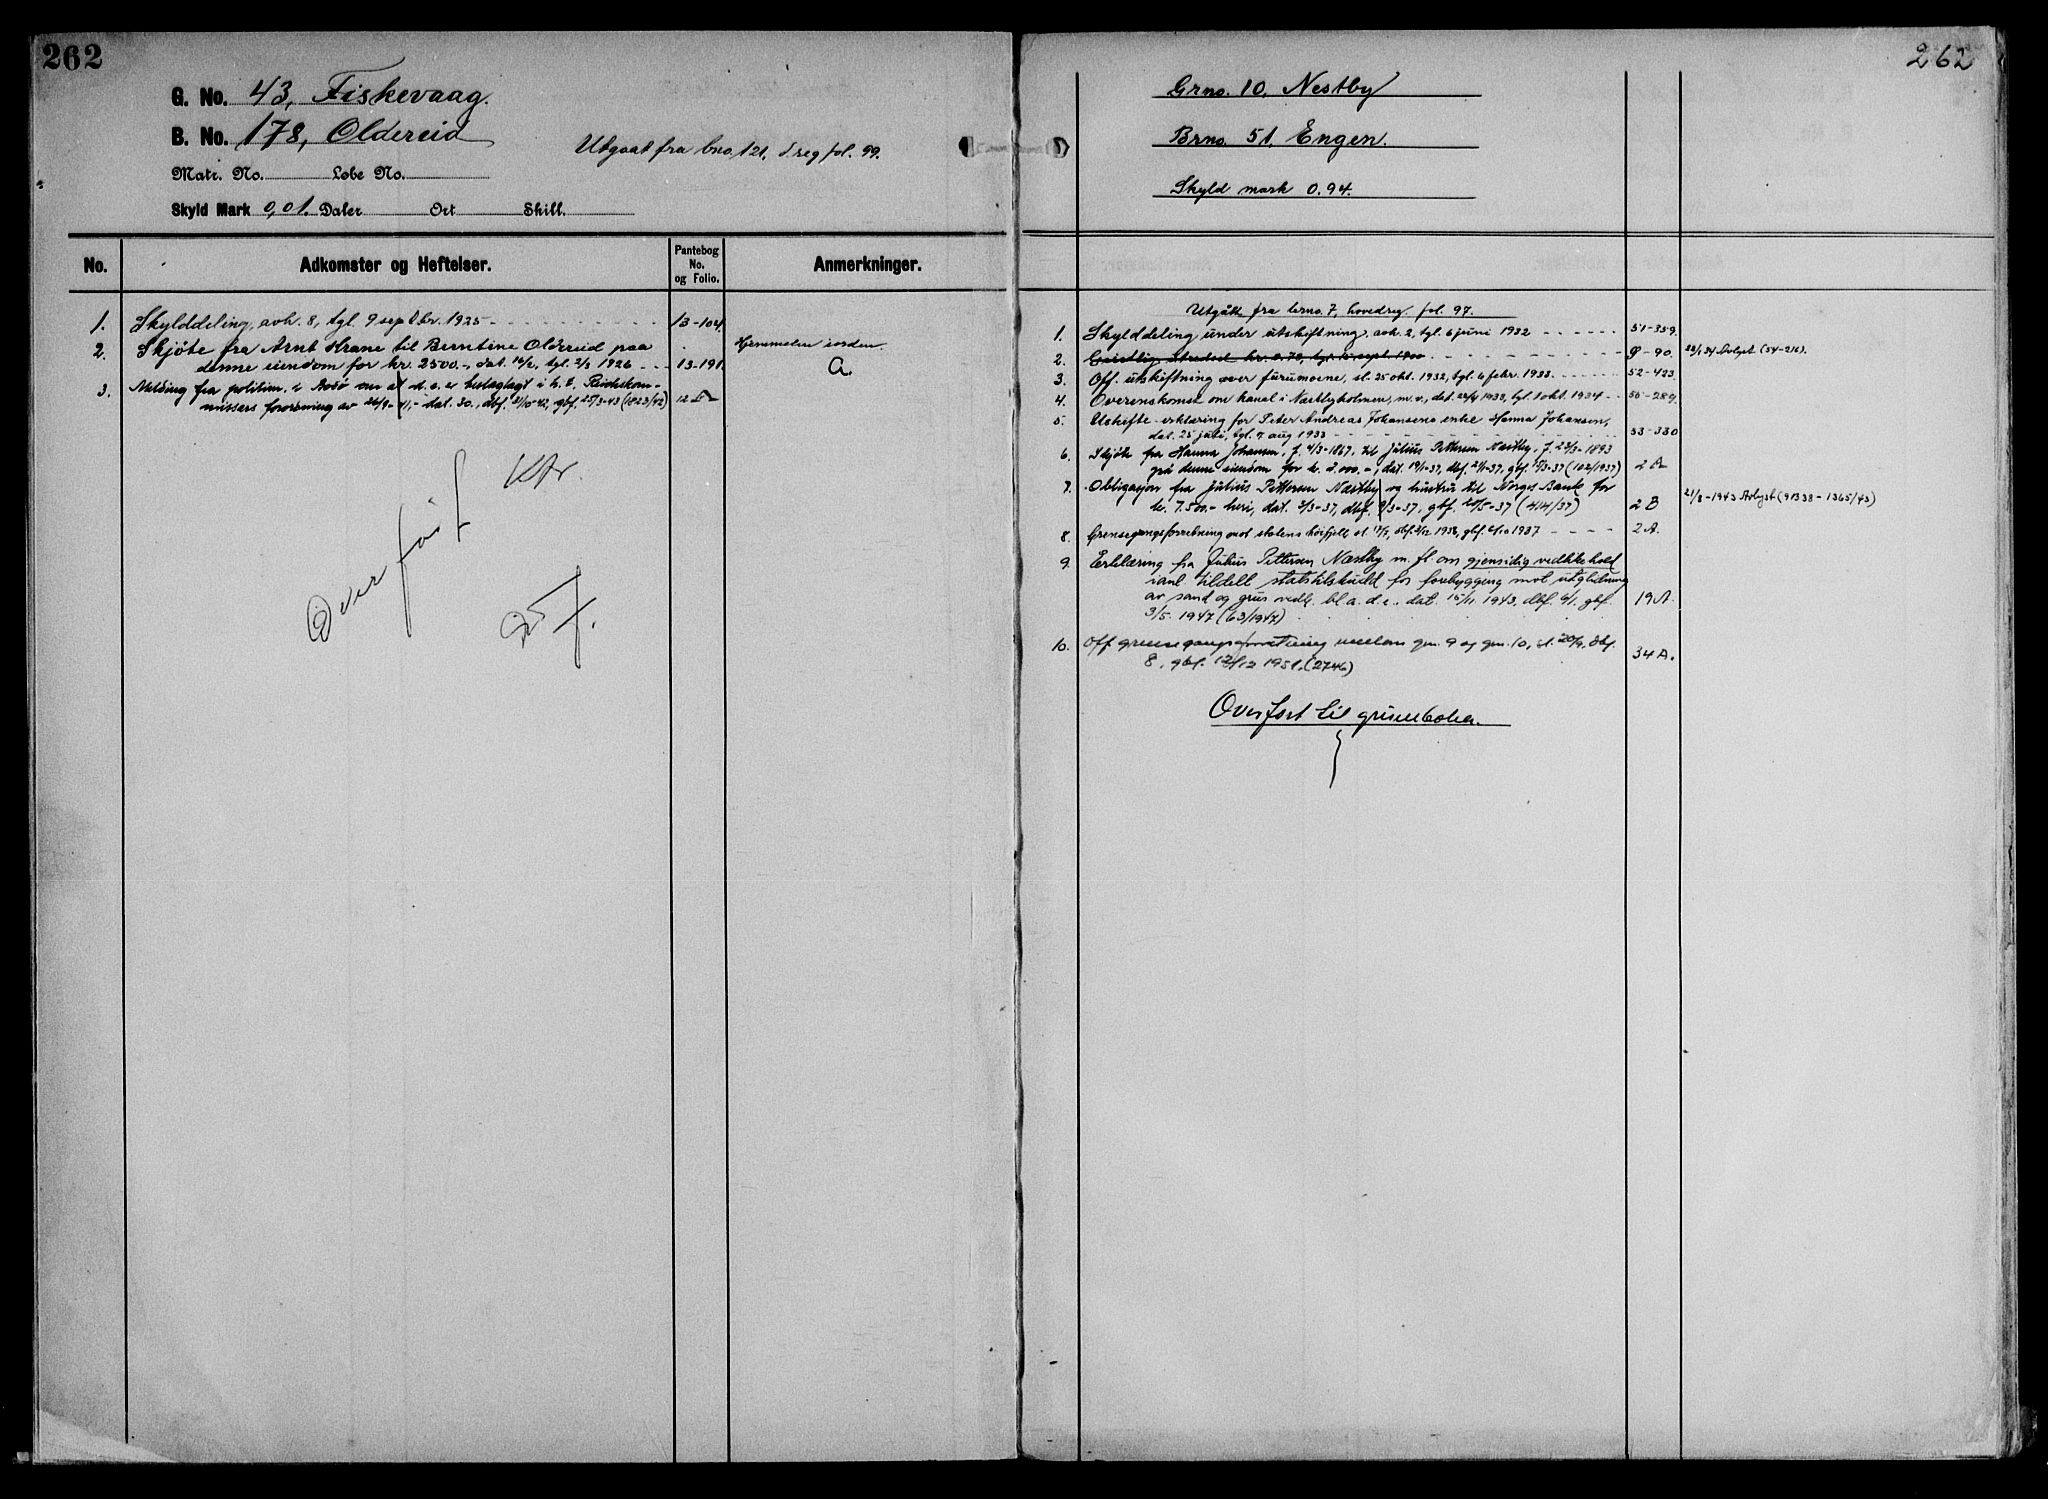 262
G. No. 43, Fiskevaag.
B. No. 178, Oldereid
Utgaat fra bno. 121, d reg fol. 99.
Matr. No. Løbe No.
Skyld Mark 0,01. Daler Ort Skill.
No. Adkomster og Heftelser. Pantebog No. og Folio. Anmerkninger.
1. Skylddeling, avh. 8, tgl. 9 septbr. 1925 13-104
2. Skjøte fra Arnt Krane til Berntine Oldereid paa Hjemmelen iorden.
denne eiendom for kr. 2500.-, dat. 16/2, tgl. 2/3 1926 13-191 A.
3. Melding fra politim. i Bodø om at d. e. er beslaglagt i h. t. Rikskom-
missærs forordning av 26/9-41,- dat. 30., dbf. 31/10-42, gbf. 25/3-43 (1823/42) 12 A
Overført KAr.
262
Grno. 10. Nestby
Brno. 51. Engen.
Skyld mark 0.94.
Utgått fra brno. 7, hovedreg. fol. 97.
1. Skylddeling under utskiftning, avh. 2, tgl. 6 juni 1932 51-359.
2. kr. 0.70, tgl. sept. 1900 9-90. Avlyst (54-216).
3. Off. utskiftning over furumoene, sl. 25 okt. 1932, tgl. 6 febr. 1933. 52-423.
4. Overenskomst om kanal i Næstbyholmen, m.v., dat. 22/4 1933, tgl. 1 okt. 1934 55-289.
5. Uskifte-erklæring for Peter Andreas Johansens enke Hanna Johansen,
dat. 25 juli, tgl. 7 aug 1933 53-330
6. Skjøte fra Hanna Johansen, f. 4/3-1867, til Julius Pettersen Næstby, f. 23/3-1893
på denne eiendom for kr. 2.000.-, dat. 19/1-37, dbf. 21/1-37, gbf. 15/3-37 (102/1937) 2 A
7. Obligasjon fra Julius Pettersen Næstby og hustru til Norges Bank for
kr. 7.500.- heri, dat. 3/3-37, dbf. 9/3-37, gbf. 20/5-37 (414/37) 2 B 21/8-1943 Avlyst (91338-1365/43)
8. Grensegangsforretning mot statens høifjell, sl. 1938, gbf. 1937 2 A.
9. Erklæring fra Julius Pettersen Næstby m. fl. om gjensidig vedlikehold
i anl. tildelt statstilskudd for forebygging mot utglidning
av sand og grus vedk. bl. a. d. e., dat. 15/11 1943, dbf. 6/1, gbf.
3/5. 1947 (63/1947) 19 A
10. Off. grensegangsforretning mellem gnr. 9 og gnr. 10, sl. 20/9, dbf.
8, gbf. 12/12 1951. (2746) 34 A.
Overført til grunnboken.